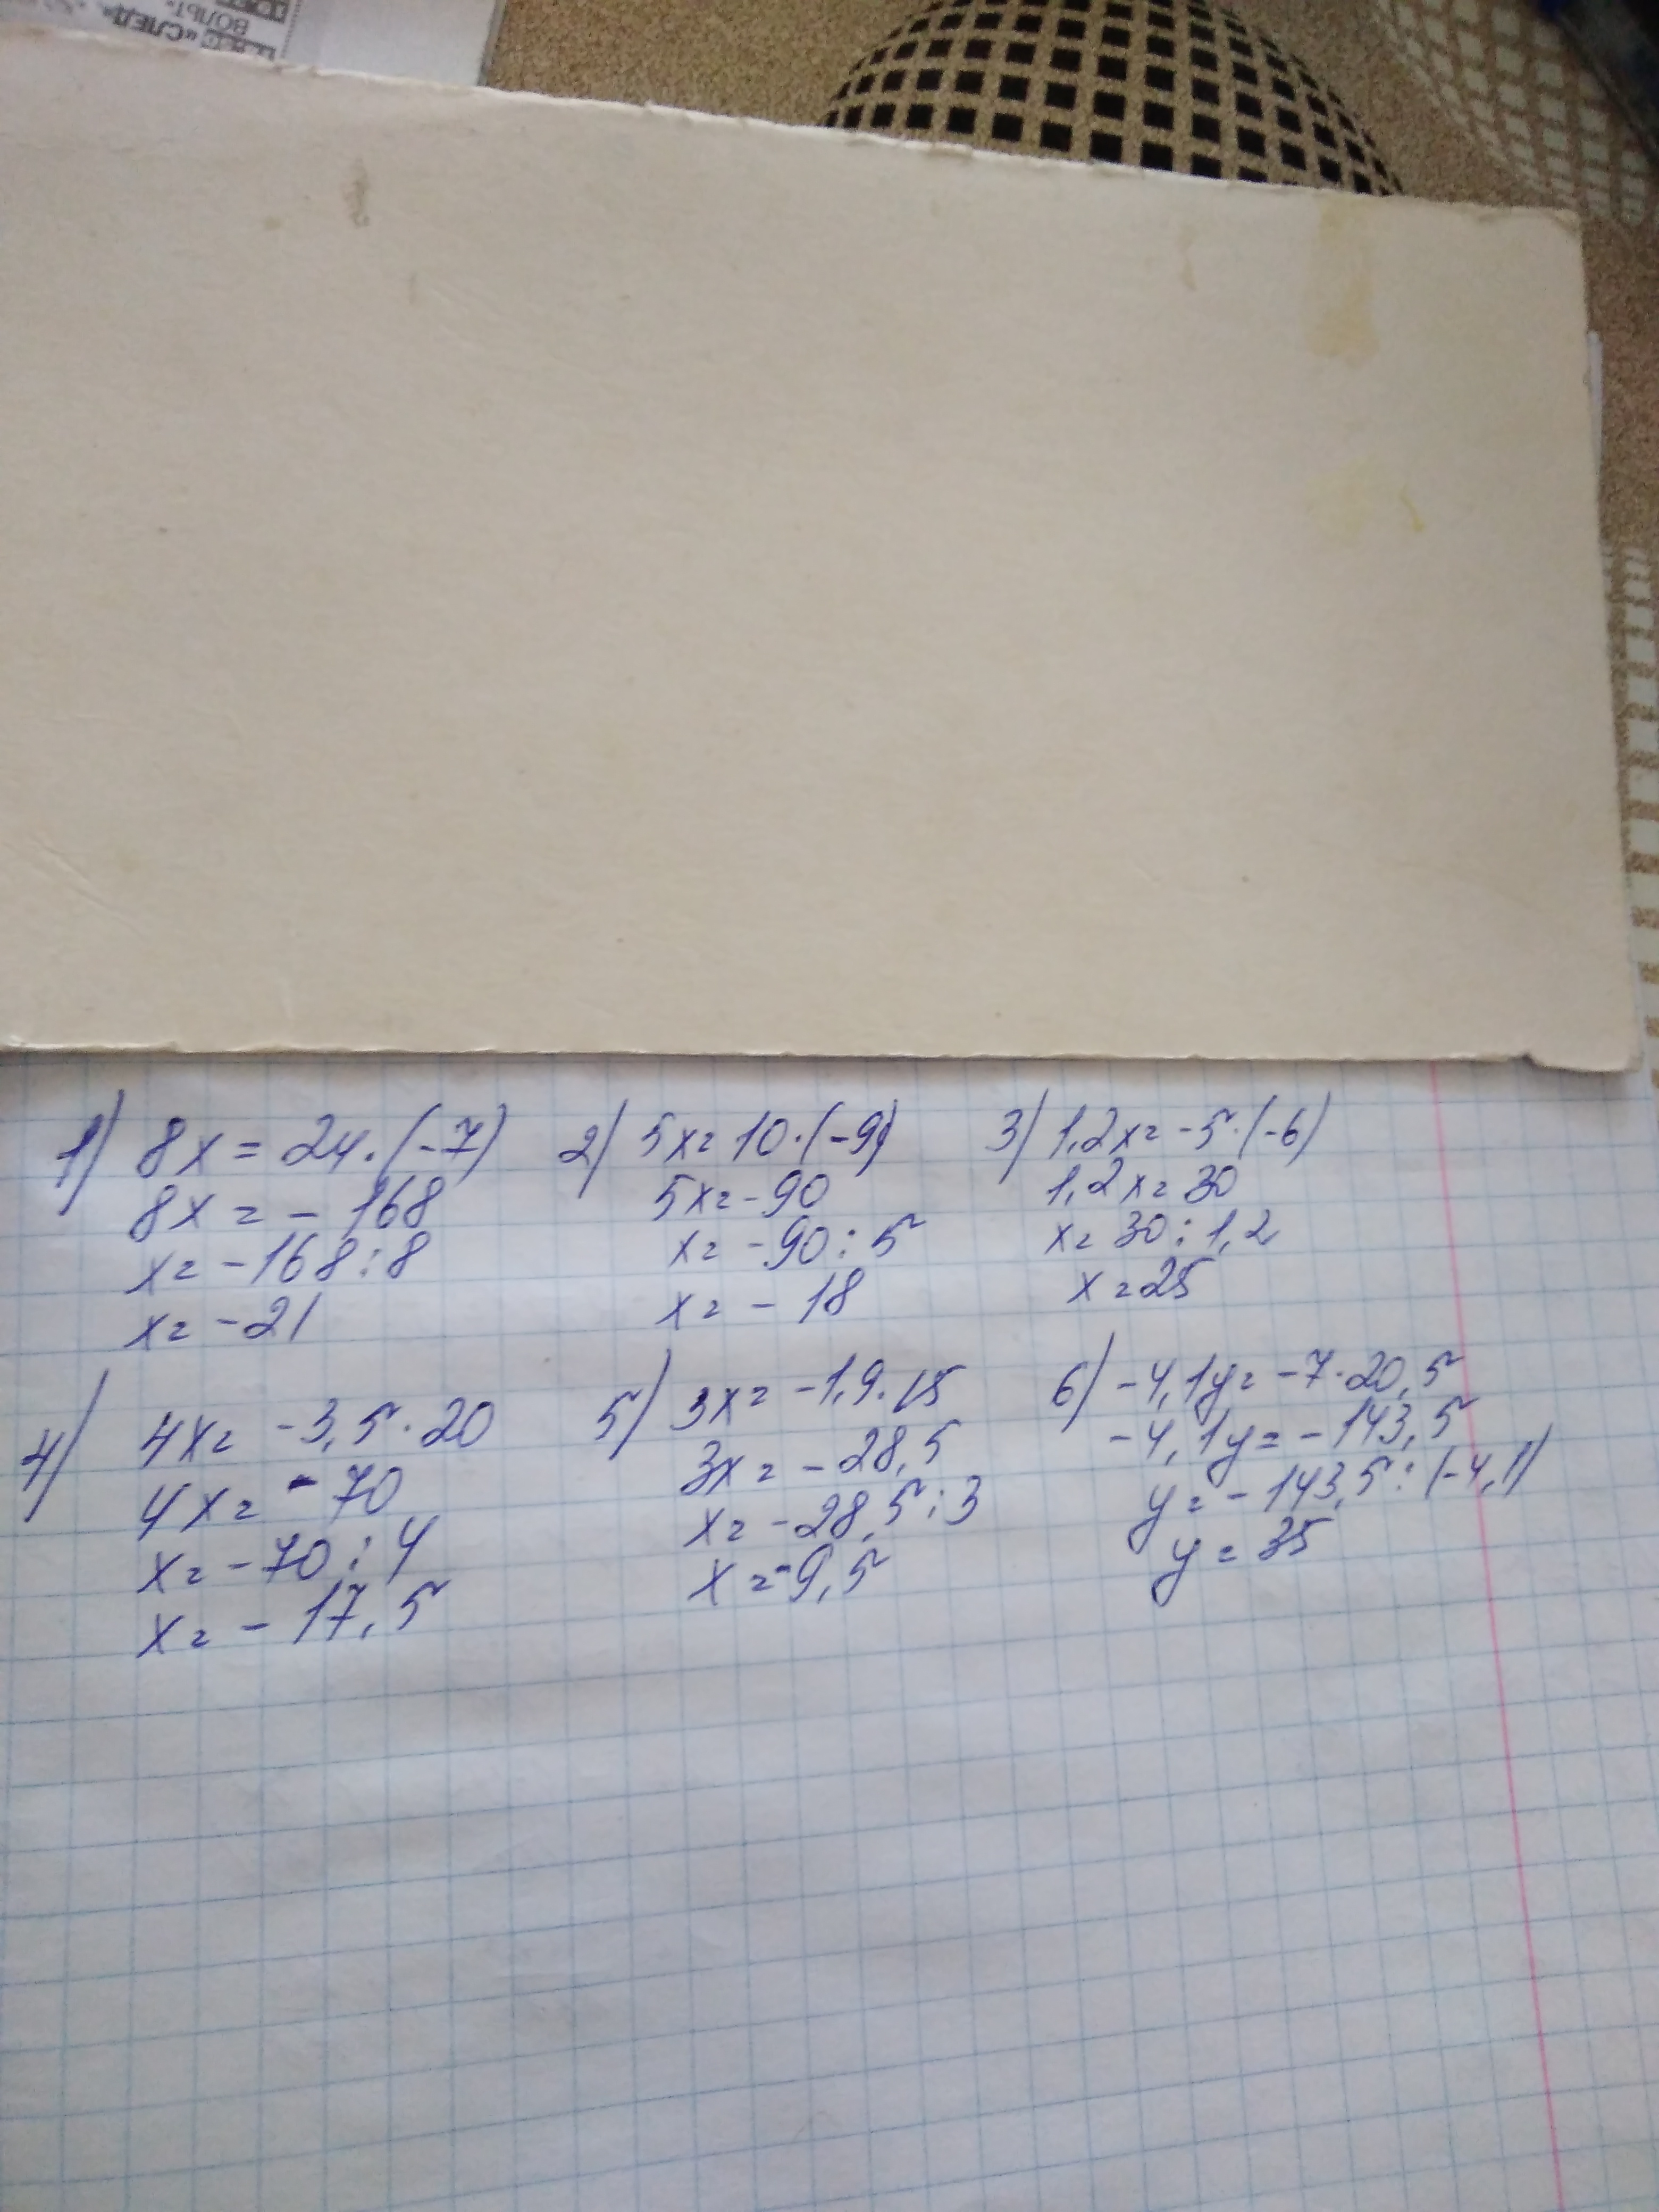 ВОЛЬТ.
«СЛЕД
1) 8x = 24·(-7)
8x = - 168
x = -168 : 8
x = -21
2) 5x = 10·(-9)
5x = -90
x = -90 : 5
x = - 18
3) 1,2x = -5·(-6)
1,2x = 30
x = 30 : 1,2
x = 25
4) 4x = -3,5·20
4x = -70
x = -70 : 4
x = - 17,5
5) 3x = -1,9·15
3x = -28,5
x = -28,5 : 3
x = -9,5
6) -4,1y = -7·20,5
-4,1y = -143,5
y = -143,5 : (-4,1)
y = 35